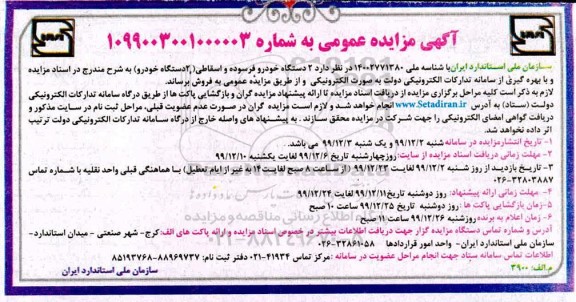 آگهی مزایده عمومی به شماره ۱۰۹۹۰۰۳۰۰۱۰۰۰۰۰۳
سازمان ملی استاندارد ایران با شناسه ملی ۱۴۰۰۲۷۷۱۳۸۰ در نظر دارد ۲ دستگاه خودرو فرسوده و اسقاطی(۲دستگاه خودرو) به شرح مندرج در اسناد مزایده
و با بهره گیری از سامانه تدارکات الکترونیکی دولت به صورت الکترونیکی و از طریق مزایده عمومی به فروش برساند.
لازم به ذکر است کلیه مراحل برگزاری مزایده از دریافت اسناد مزایده تا ارائه پیشنهاد مزایده گران و بازگشایی پاکت ها از طریق درگاه سامانه تدارکات الکترونیکی
دولت (ستاد) به آدرس www.Setadiran.ir انجام خواهد شد و لازم است مزایده گران در صورت عدم عضویت قبلی، مراحل ثبت نام در سایت مذکور و
دریافت گواهی امضای الکترونیکی را جهت شرکت در مزایده محقق سازند . به پیشنهاد های واصله خارج از درگاه سامانه تدارکات الکترونیکی دولت ترتیب
اثر داده نخواهد شد.
۱- تاریخ انتشارمزایده در سامانه شنبه ۹۹/۱۲/۲ و یک شنبه ۹۹/۱۲/۳ می باشد.
۲- مهلت زمانی دریافت اسناد مزایده از سایت: روزچهارشنبه تاریخ ۹۹/۱۲/۶ لغایت یکشنبه ۹۹/۱۲/۱۰
۳- تاریخ بازدید از روز شنبه ۹۹/۱۲/۲ لغایت ۹۹/۱۲/۲۲ (از ساعت ۸ صبح لغایت۱۴ به غیر از ایام تعطیل) با هماهنگی قبلی واحد نقلیه با شماره تماس
۰۲۶-۳۲۸۰۳۸۸۷
۴- مهلت زمانی ارائه پیشنهاد: روز دوشنبه تاریخ۹۹/۱۲/۱۱ لغایت ۹۹/۱۲/۲۴
۵-زمان بازگشایی پاکت ها : روز دوشنبه تاریخ ۹۹/۱۲/۲۵ ساعت ۱۰ صبح
۶- زمان اعلام به برنده روزشنبه ۹۹/۱۲/۲۶ ساعت ۱۱ صبح
آدرس و شماره تماس دستگاه مزایده گزار جهت دریافت اطلاعات بیشتر در خصوص اسناد مزایده و ارائه پاکت های الف: کرج- شهر صنعتی - میدان استاندارد-
سازمان ملی استاندارد ایران- واحد امور قراردادها ۰۲۶-۳۲۸۶۱۰۵۸
اطلاعات تماس سامانه ستاد جهت انجام مراحل عضویت در سامانه : مرکز تماس ۴۱۹۳۴-۰۲۱ دفتر ثبت نام: ۸۸۹۶۹۷۳۷-۸۵۱۹۳۷۶۸
م.الف: ۳۹۰۰ سازمان ملی استاندارد ایران